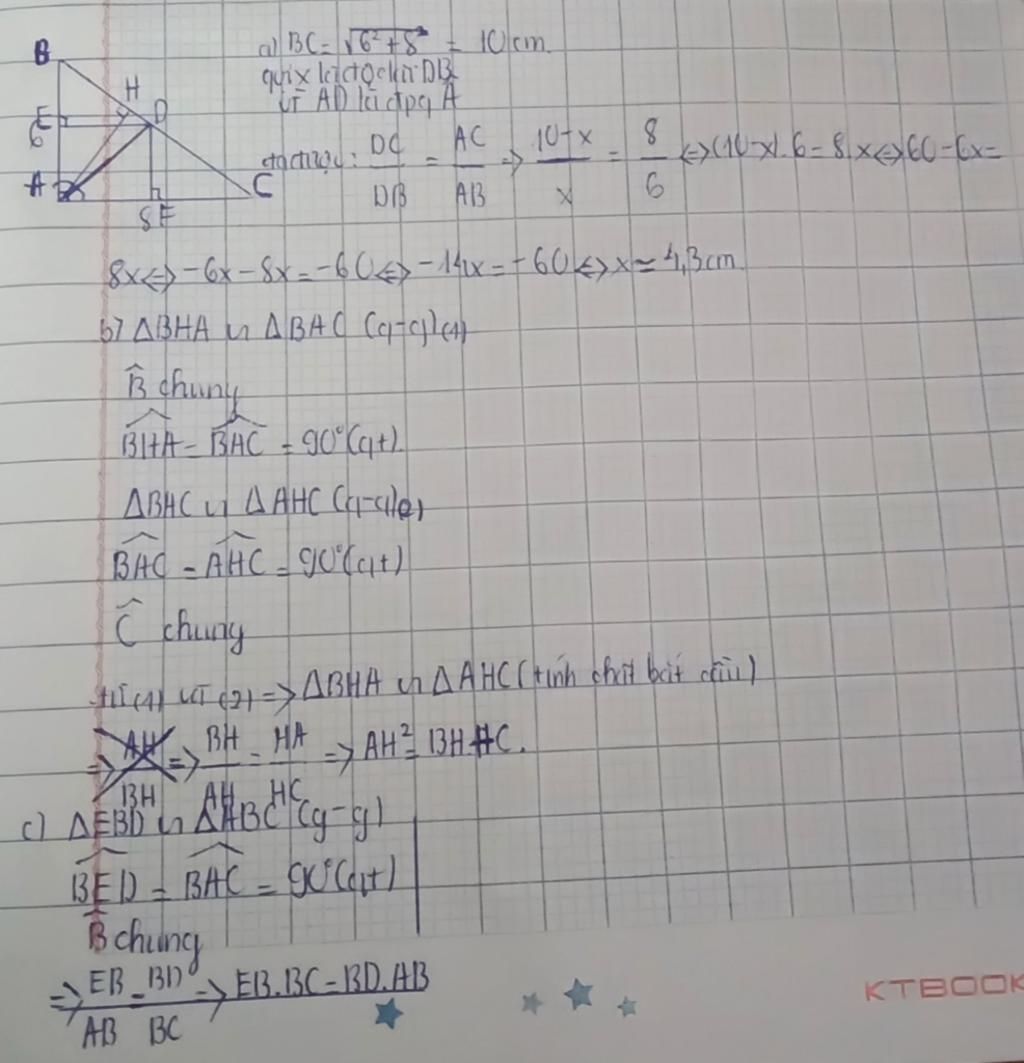 B
H
E
D
6
A
C
8 F
a) BC = √6²+8² = 10 cm
gọi x là độ dài DB
Vì AD là đpg Â
ta có: DC/DB = AC/AB => 10-x/x = 8/6 <=> (10-x).6 = 8.x <=> 60-6x =
8x <=> -6x-8x = -60 <=> -14x = -60 <=> x ≈ 4,3cm
b) ΔBHA ∽ ΔBAC (g-g) (1)
B̂ chung
BHA = BAC = 90° (gt)
ΔBHC ∽ ΔAHC (g-g) (2)
BAC = AHC = 90° (gt)
Ĉ chung
từ (1) và (2) => ΔBHA ∽ ΔAHC (tính chất bắt cầu)
=> BH/AH = HA/HC => AH² = BH.HC.
c) ΔEBD ∽ ΔABC (g-g)
BED = BAC = 90° (gt)
B̂ chung
=> EB/AB = BD/BC => EB.BC = BD.AB
KTBOOK